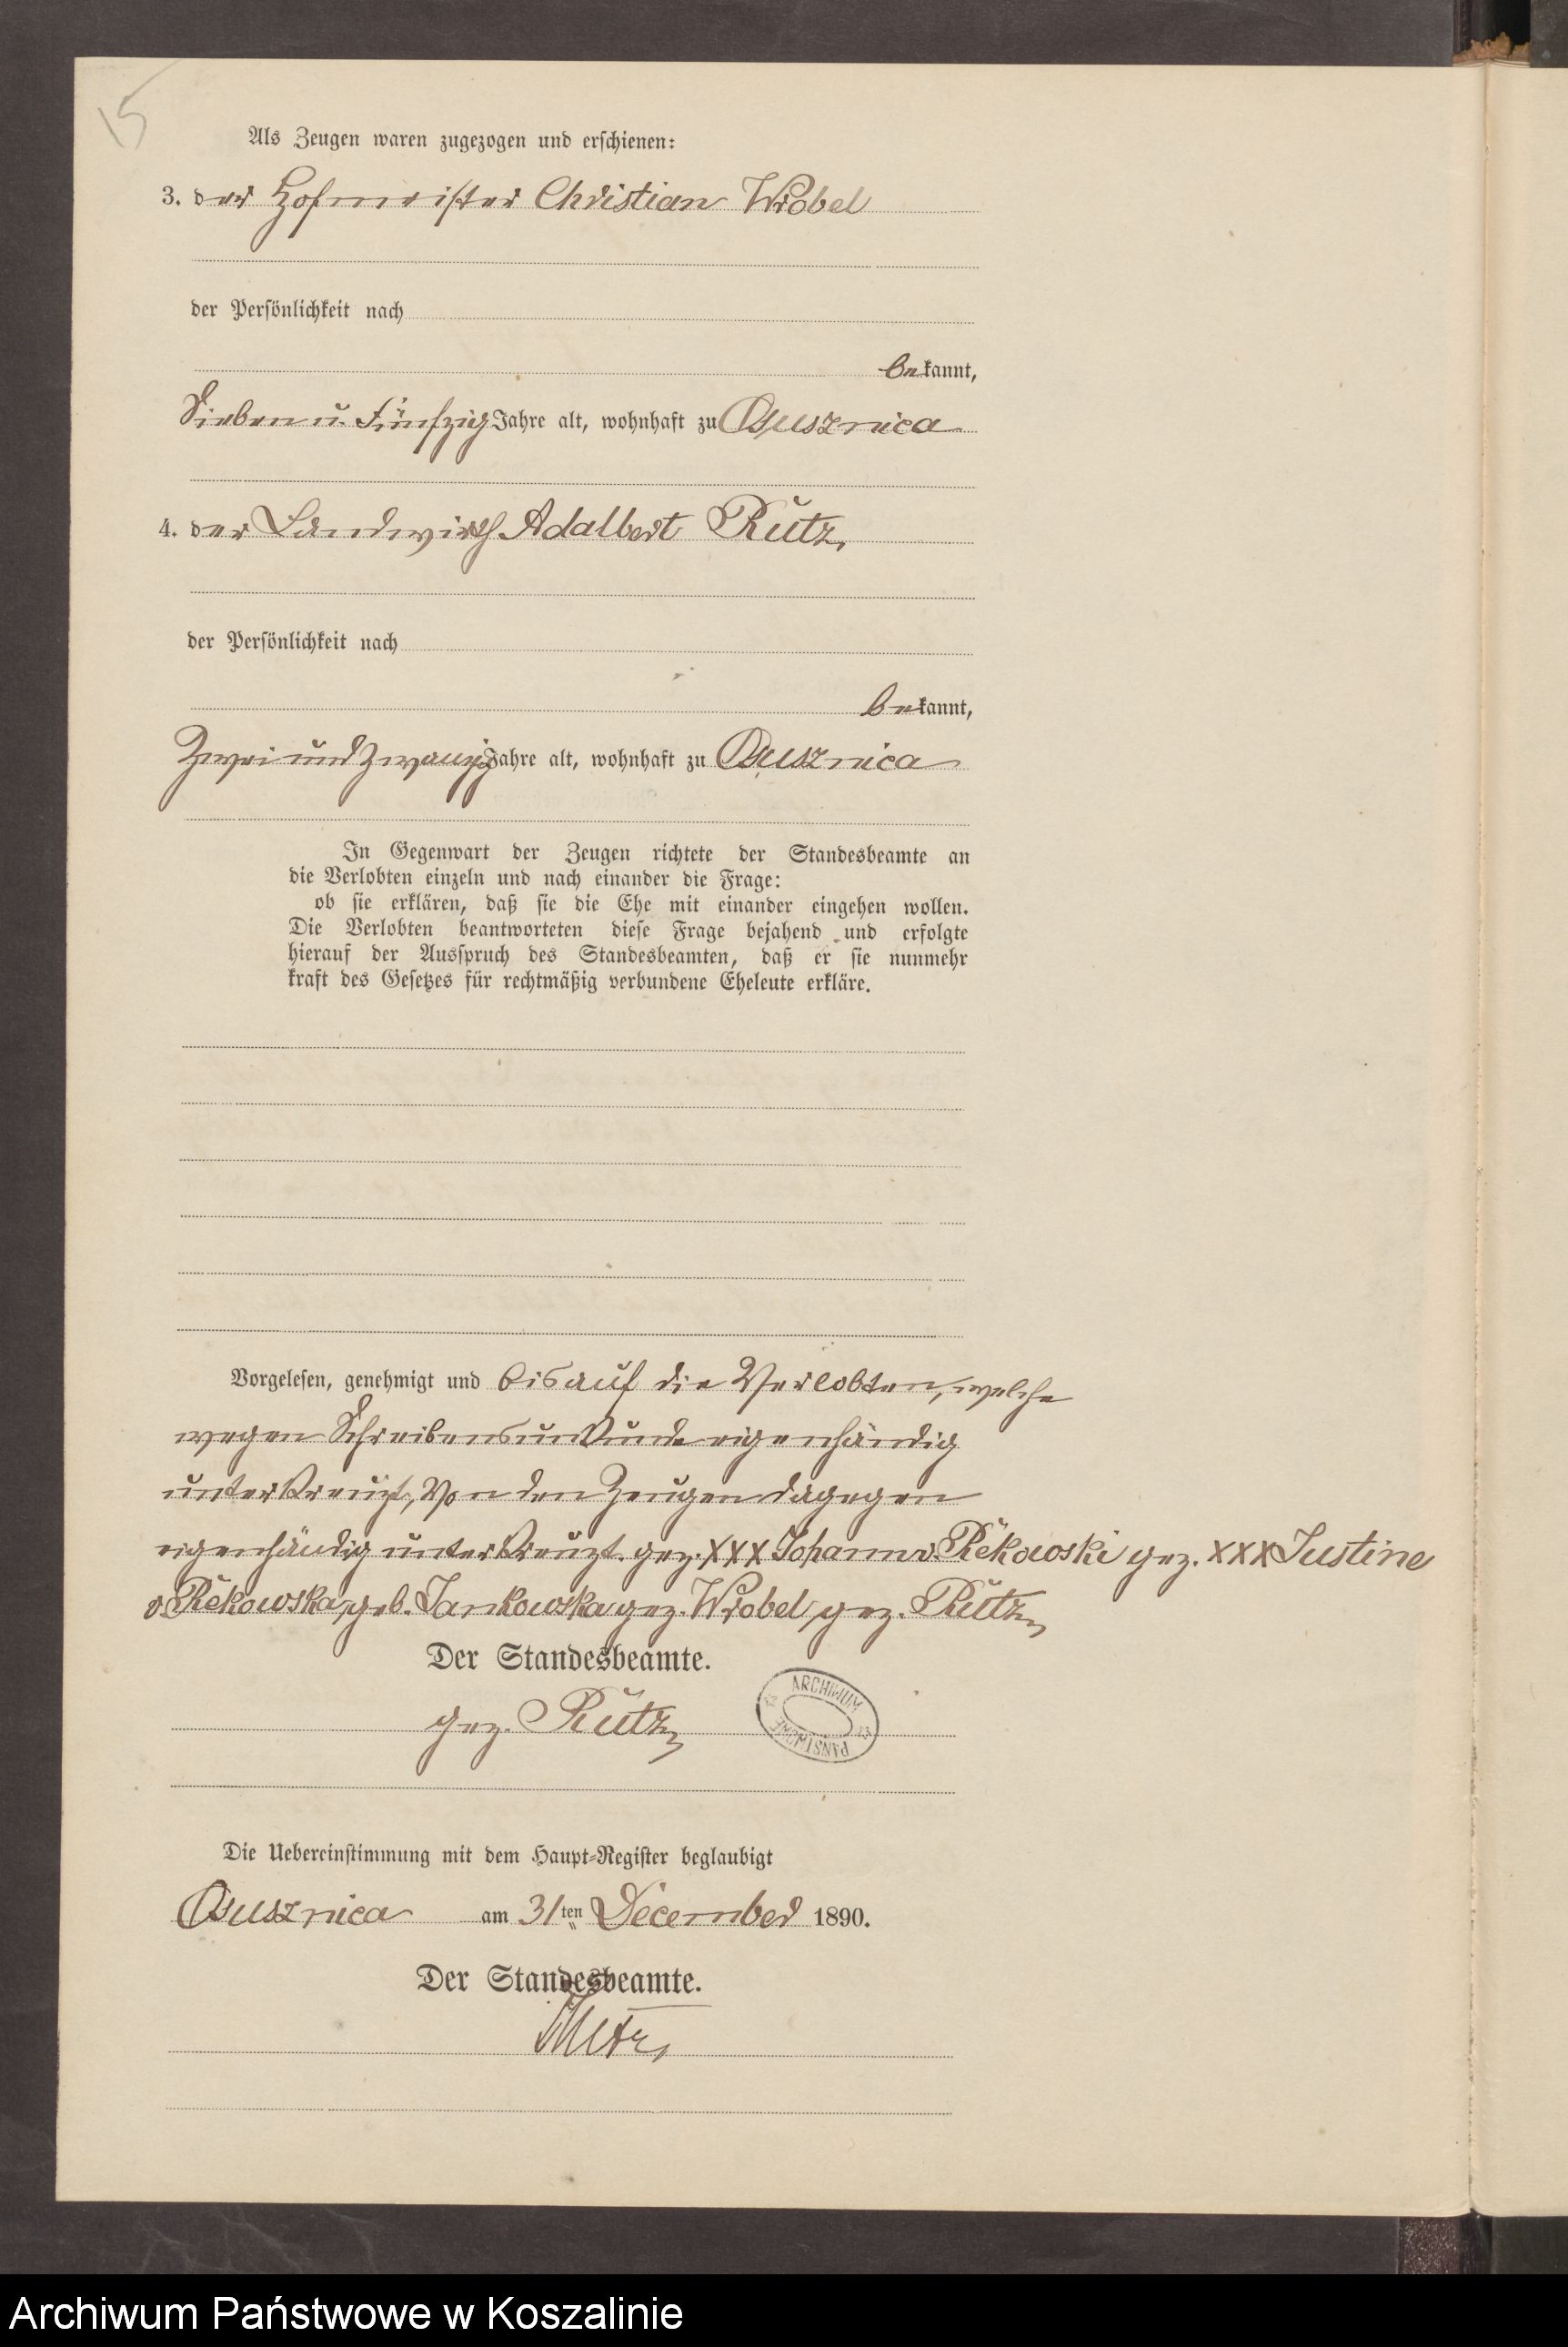 15
Als Zeugen waren zugezogen und erschienen:
3. der Hofmeister Christian Wrobel
der Persönlichkeit nach
bekannt,
Sieben u. Fünfzig Jahre alt, wohnhaft zu Ossusznica
4. der Landwirth Adalbert Rutz,
der Persönlichkeit nach
bekannt,
Zwei und zwanzig Jahre alt, wohnhaft zu Ossusznica
In Gegenwart der Zeugen richtete der Standesbeamte an
die Verlobten einzeln und nach einander die Frage:
ob sie erklären, daß sie die Ehe mit einander eingehen wollen.
Die Verlobten beantworteten diese Frage bejahend und erfolgte
hierauf der Ausspruch des Standesbeamten, daß er sie nunmehr
kraft des Gesetzes für rechtmäßig verbundene Eheleute erkläre.
Vorgelesen, genehmigt und bis auf die Verlobten, welche
wegen Schreibensunkunde eigenhändig
unterkreuzt, von den Zeugen dagegen
eigenhändig unterkreuzt. gez. XXX Johann v. Rekowski gez. XXX Justine
v. Rekowska, geb. Jankowska gez. Wrobel, gez. Rutz
Der Standesbeamte.
gez. Rutz
ARCHIWUM PAŃSTWOWE
Die Uebereinstimmung mit dem Haupt-Register beglaubigt
Ossusznica am 31ten December 1890.
Der Standesbeamte.
Archiwum Państwowe w Koszalinie